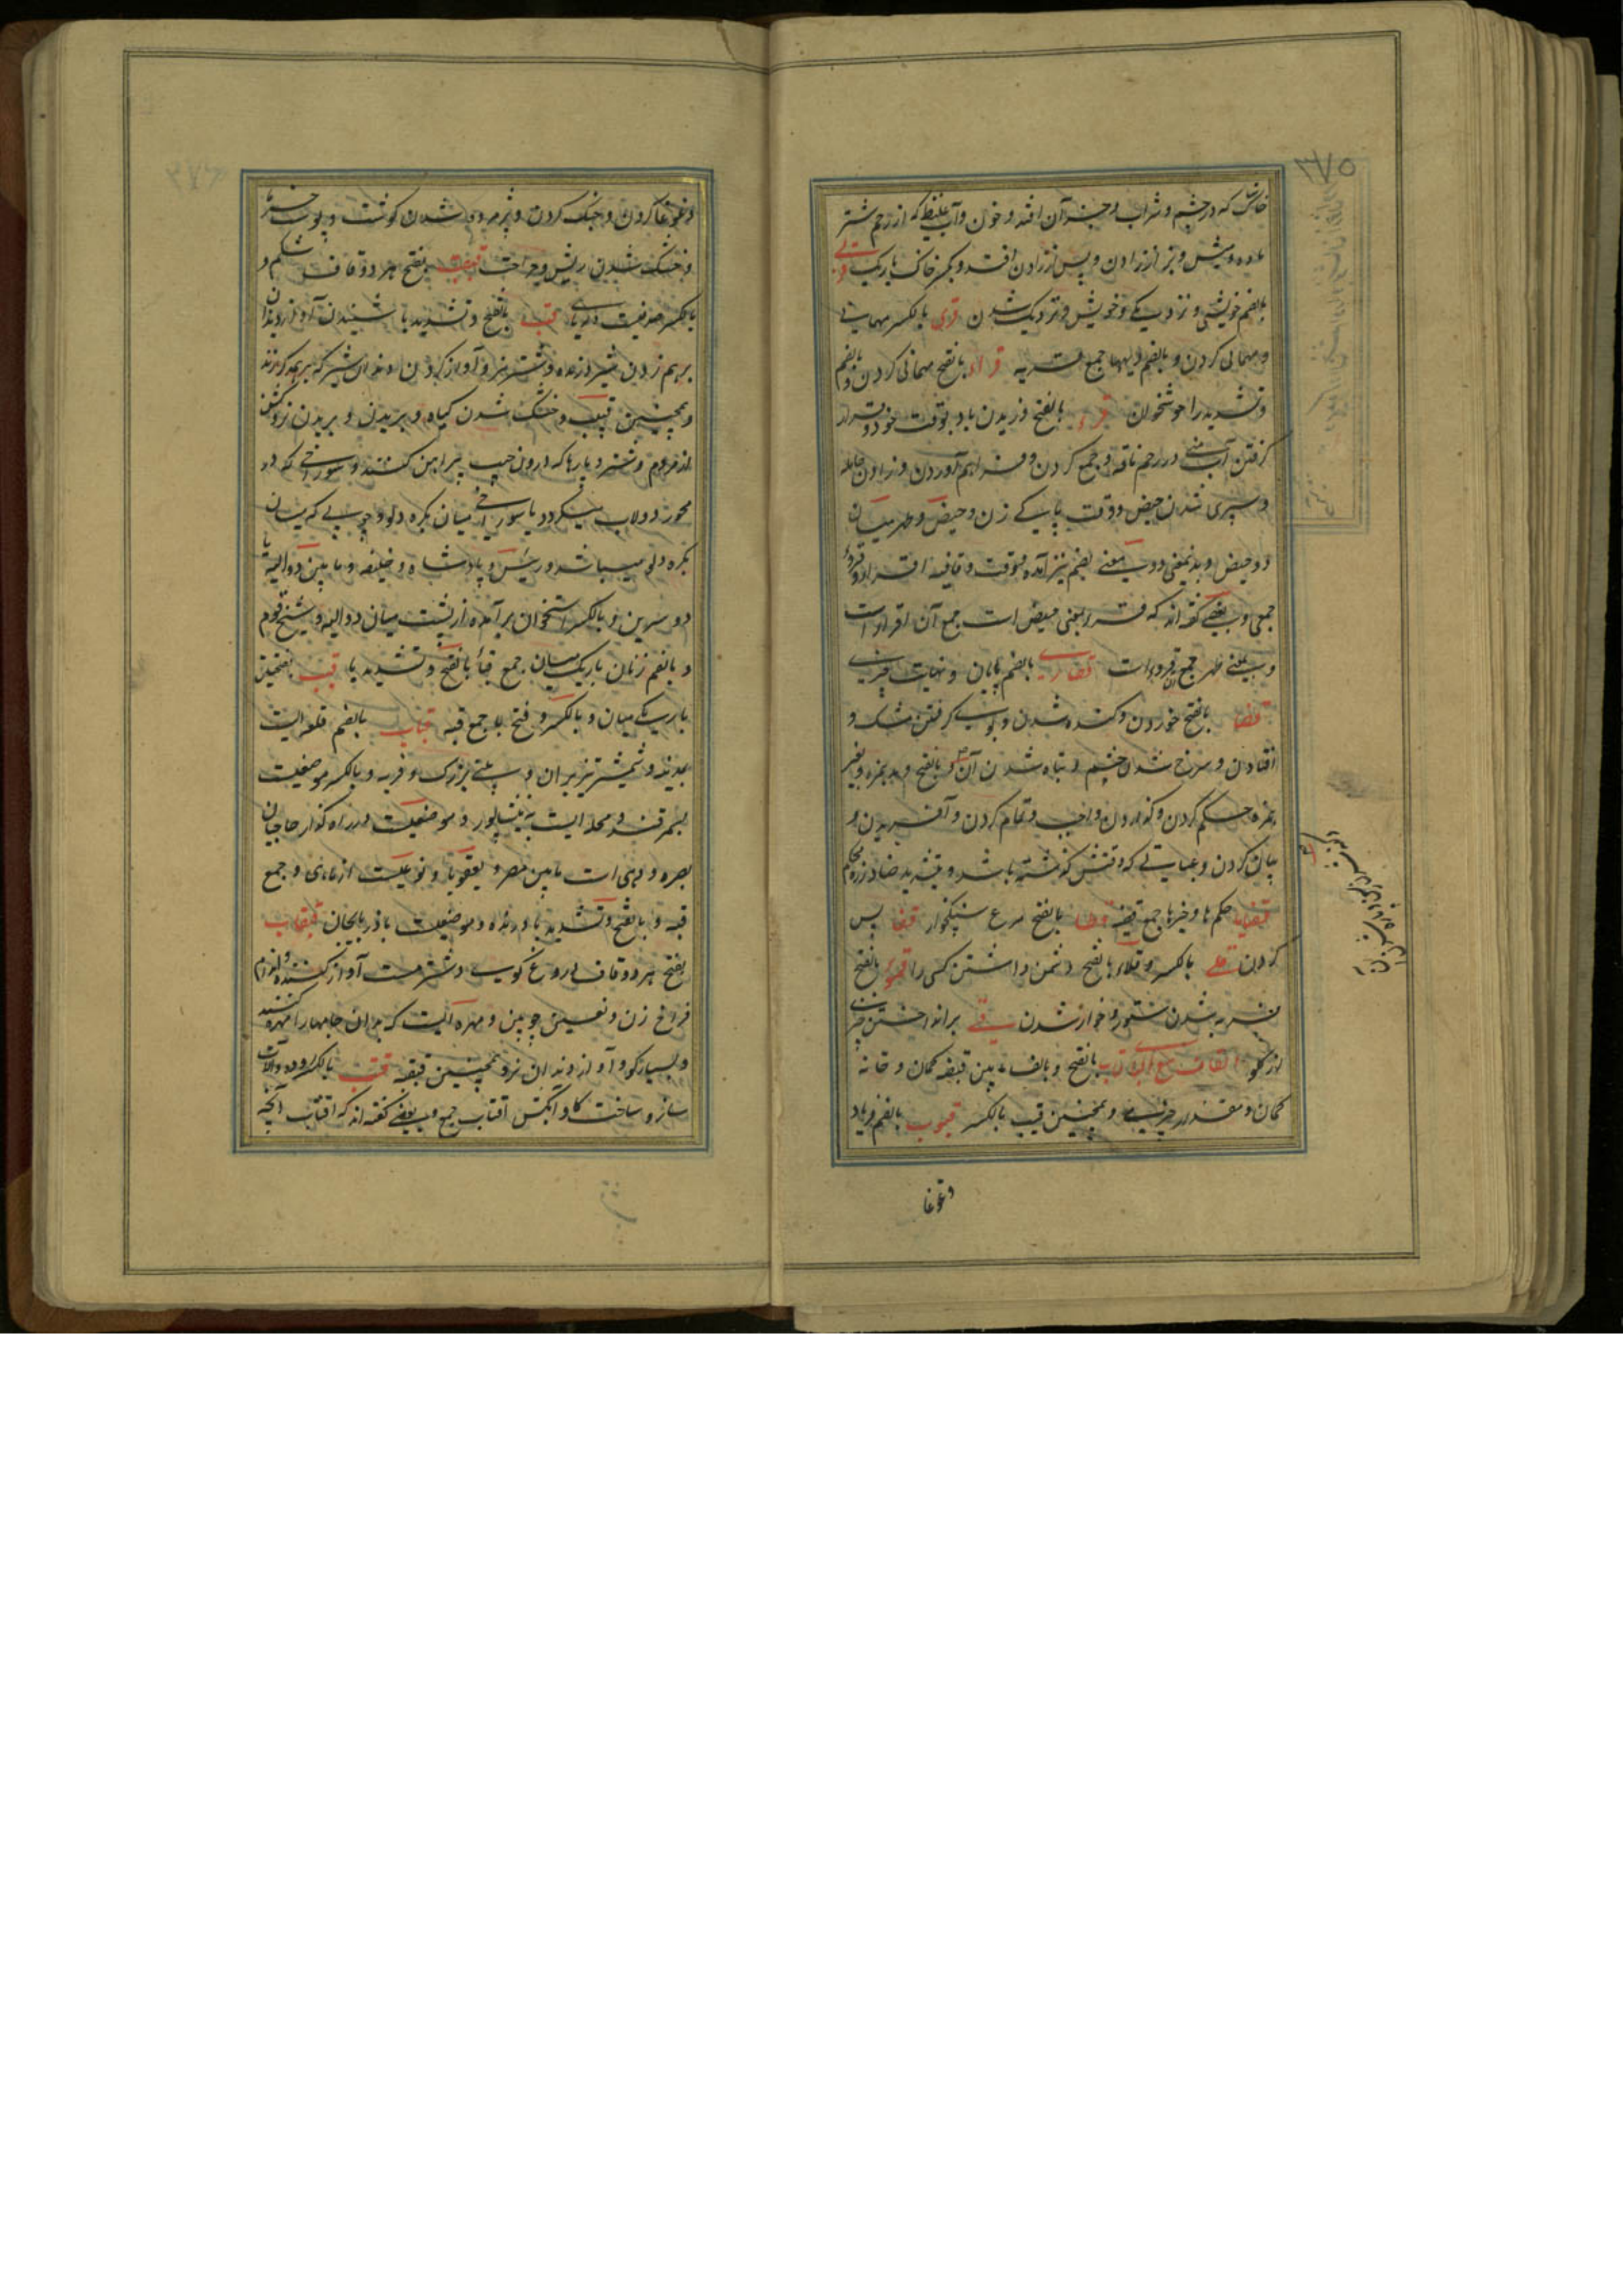 ۳۷۵
خاشاک که در چشم و شراب و جز آن افتد و خون و آب غلیظ که از رحم شتر
ماده و میش و بز از زادن و پس از زادن افتد و بکسر خاک باریک
بالضم خویشی و نزدیکی و خویش و نزدیک شدن قری بالکسر مهمانی
و مهمانی کردن و بالضم دیهها جمع قریه قراء بالفتح مهمانی کردن و بالضم
و تشدید را خوشخوان قرء بالفتح وزیدن باد بوقت خود و قرار
گرفتن آب منی در رحم ناقه و جمع کردن و فراهم آوردن و زادن حامله
و سپری شدن حیض و وقت پاکی زن و حیض و طهر میان
دو حیض و بدینمعنی و بمعنی بضم نیز آمده و وقت و قافیه اقراء و قروء
جمع و بعضی گفته اند که قرء بمعنی حیض است جمع آن اقراء است
و بمعنی طهر جمع آن قروء است قصاری بالضم پایان و نهایت چیزی
قضا بالفتح خوردن و کنده شدن و بوی گرفتن مشک و
افتادن و سرخ شدن چشم و تباه شدن آن و بالفتح و مد همزه و بغیر
همزه حکم کردن و گذاردن واجب و تمام کردن و آفریدن و
بیان کردن و عبادتی که وقتش گذشته باشد و بتشدید ضاد زره محکم
قضایا حکم ها و خبرها جمع قضیه قطا بالفتح مرغ سنگخوار قفا پس
گردن قلی بالکسر و قلاء بالفتح دشمن داشتن کسی را قموء بالفتح
فربه شدن ستور و خوار شدن قی برانداختن چیزی
از گلو القاف مع الباء قاب بالفتح و بالف مابین قبضه کمان و خانه
کمان و مقدار چیزی و همچنین قیب بالکسر قبوب بالضم فریاد
وغوغا
وغوغا کردن و جنگ کردن و پژمرده شدن گوشت و پوست خرما
و خشک شدن ریش و جراحت قبقب بفتح هر دو قاف شکم و
بالکسر صدفیست دریایی قب بالفتح و تشدید با شنیدن آواز دندان
برهم زدن شیر درنده و شتر نر و آواز کردن دندان شیر که برهم زند
و همچنین قبیب و خشک شدن گیاه و بریدن و بریدن نرو کشن
از مردم و شتر و پارها که درون جیب پیراهن کنند و سوراخی که در
محور دولاب میگردد یا سوراخی میان بکره دلو و چوبی که میان
بکره دلو میباشد و رئیس و پادشاه و خلیفه و مابین دو الیه یا
دو سرین و بالکسر استخوان برآمده از پشت میان دو الیه و شیخ قوم
و بالضم زنان باریک میان جمع قباء بالفتح و تشدید با قبب بفتحتین
باریکی میان و بالکسر و فتح با جمع قبه قباب بالضم قلعه ایست
بمدینه و شمشیر تیز بران و بینی بزرگ و فربه و بالکسر موضعیست
بسمرقند و محله ایست به نیشاپور و موضعیست در راه گذار حاجیان
بصره و دهی است مابین مصر و یعقوبا و نوعیست از ماهی و جمع
قبه و بالفتح و تشدید با درنده و موضعیست باذربایجان قبقاب
بفتح هر دو قاف دروغ گوی و شتر مست آواز کننده و اندام
فراخ زن و نعلین چوبین و مهره ایست که بدان جامها را مهره کنند
و بسیار گو و آواز دندان نر و همچنین قبقبه قتب بالکسر روده و آلات
ساز و ساخت گاو آبکش اقتاب جمع و بعضی گفته اند که اقتاب آنچه